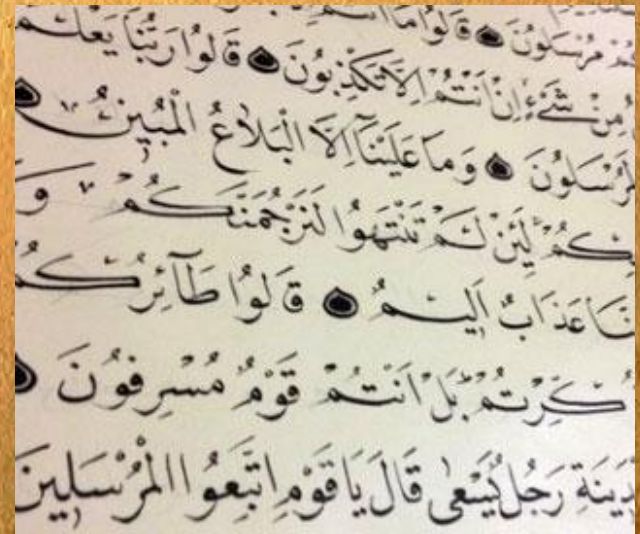 مُرْسَلُونَ ۝ قَالُوا مَا اَنْتُمْ
مِنْ شَىْءٍ اِنْ اَنْتُمْ اِلَّا تَكْذِبُونَ ۝ قَالُوا رَبُّنَا يَعْلَمُ
لَمُرْسَلُونَ ۝ وَمَا عَلَيْنَا اِلَّا الْبَلَاغُ الْمُبِينُ ۝
بِكُمْ لَئِنْ لَمْ تَنْتَهُوا لَنَرْجُمَنَّكُمْ وَ
نَّا عَذَابٌ اَلِيمٌ ۝ قَالُوا طَآئِرُكُمْ
ذُكِّرْتُمْ بَلْ اَنْتُمْ قَوْمٌ مُسْرِفُونَ ۝
دِينَةِ رَجُلٌ يَسْعٰى قَالَ يَا قَوْمِ اتَّبِعُوا الْمُرْسَلِينَ